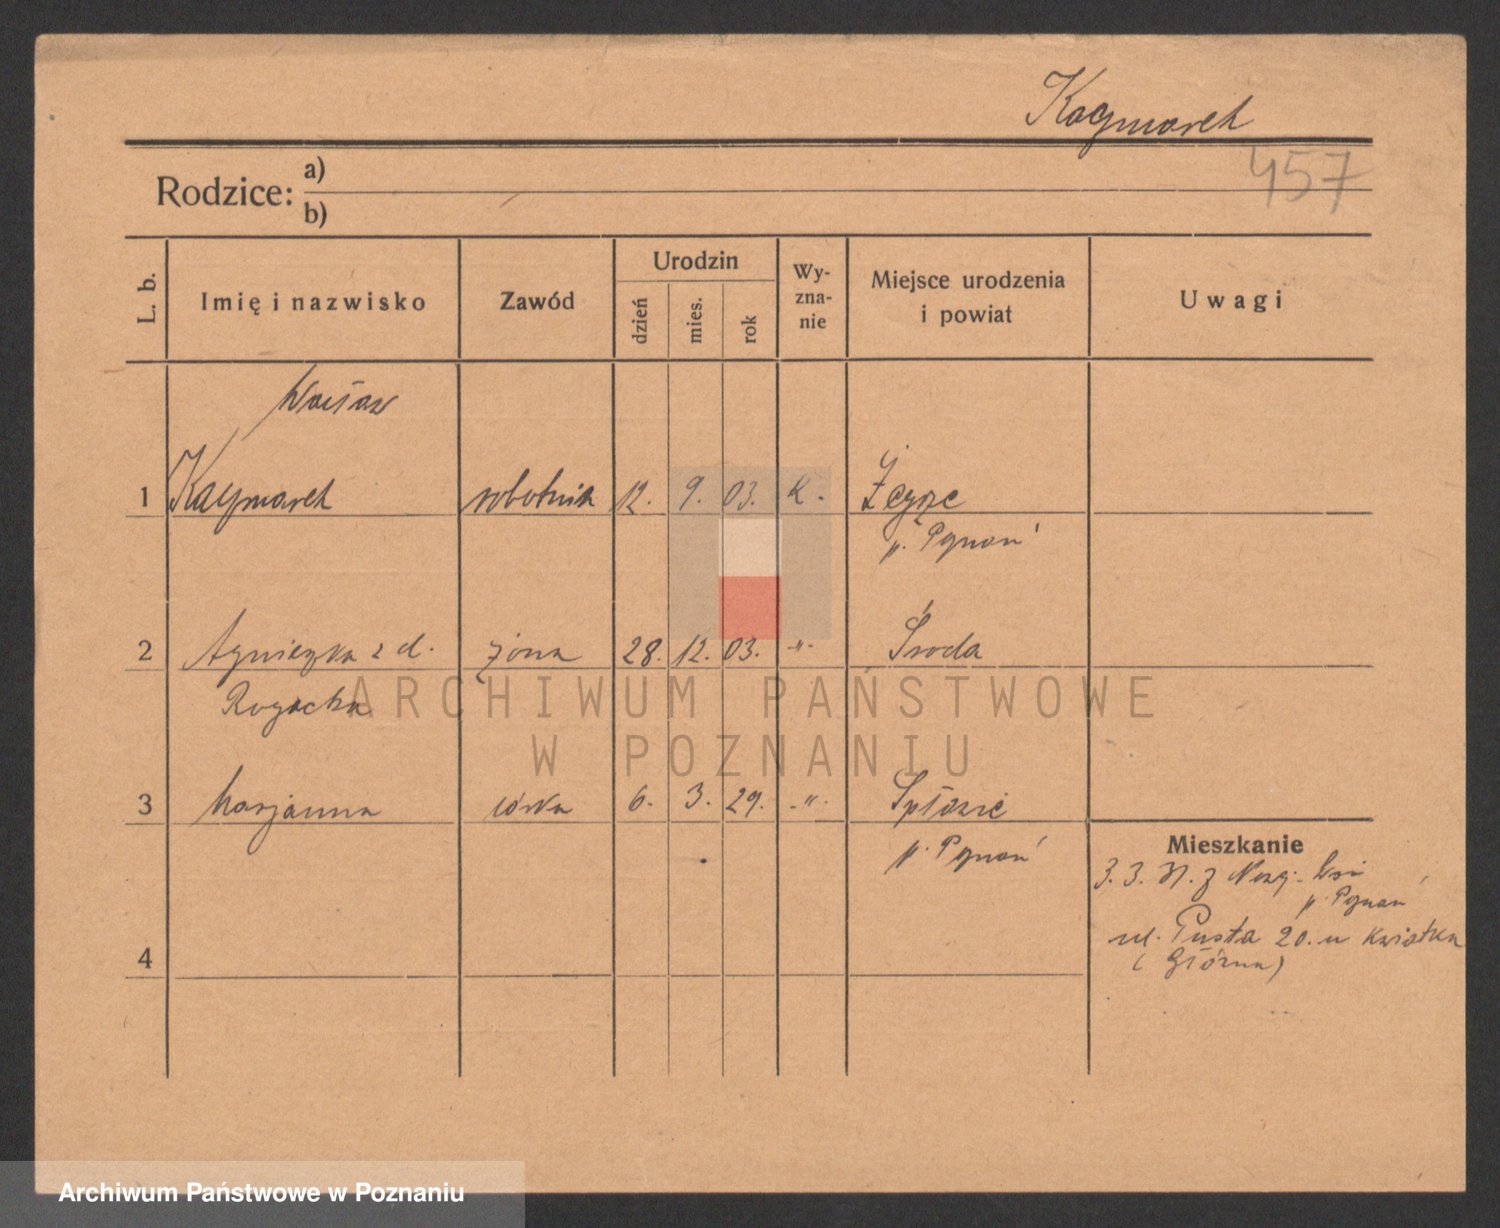 Kaczmarek
457
Rodzice: a)
b)
L. b. Imię i nazwisko Zawód Urodzin dzień mies. rok Wy-zna-nie Miejsce urodzenia i powiat Uwagi
Wacław
1 Kaczmarek robotnik 12. 9. 03. k.
p. Poznań
2 Agnieszka z d. żona 28. 12. 03. -"- Środa
Rogacka
3 Marjanna córka 6. 3. 29. -"- Spławie
p. Poznań
Mieszkanie
3. 3. 31. z Wsi
p. Poznań
4 ul. Pusta 20. u Kwiatka
(Główna)
ARCHIWUM PAŃSTWOWE
W POZNANIU
Archiwum Państwowe w Poznaniu